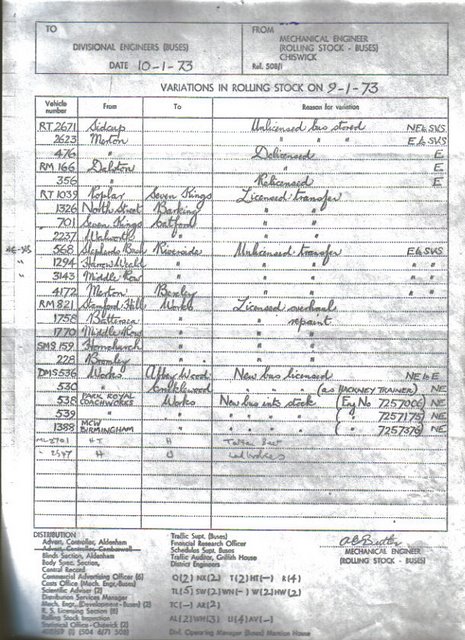 TO
DIVISIONAL ENGINEERS (BUSES)
DATE 10-1-73
FROM
MECHANICAL ENGINEER
(ROLLING STOCK - BUSES)
CHISWICK
Ref. 508/1
VARIATIONS IN ROLLING STOCK ON 9-1-73
Vehicle number From To Reason for variation
RT 2671 Sidcup Unlicensed bus stored NE to SVS
2623 Merton " " " E to SVS
476 " Delicensed E
RM 166 Dalston " E
356 " Relicensed E
RT 1039 Poplar Seven Kings Licensed transfer
1326 North Street Barking " "
701 Seven Kings Catford " "
2237 Walworth " " "
568 Shepherds Bush Riverside Unlicensed transfer E to SVS
1294 Harrow Weald " " " " "
3143 Middle Row " " " " "
4172 Merton Bexley " " " "
RM 821 Stamford Hill Works Licensed overhaul
1758 Battersea " " repaint
1770 Middle Row " " "
SMS 159 Hornchurch " " "
228 Bromley " " "
DMS 536 Works After Wood New bus licensed NE to E
530 " " " " (as HACKNEY TRAINER) NE
538 PARK ROYAL COACHWORKS Works New bus into stock (Eng No 7257006) NE
539 " " " " " " ( " 7257175) NE
1388 MCW BIRMINGHAM " " " " " ( " 7257376) NE
DISTRIBUTION
Advert. Controller, Aldenham
Advert. Controller, Camberwell
Blinds Section, Aldenham
Body Spec. Section,
Central Record
Commercial Advertising Officer (6)
Costs Office (Mech. Engr.-Buses)
Scientific Adviser (2)
Distribution Services Manager
Mech. Engr. (Development - Buses) (2)
R. S. Licensing Section (8)
Rolling Stock Inspection
Statistical Office - Chiswick (2)
Traffic Supt. (Buses)
Financial Research Officer
Schedules Supt. Buses
Traffic Auditor, Griffith House
District Engineers
Div. Operating Manager (Buses) Mansion House
MECHANICAL ENGINEER
(ROLLING STOCK - BUSES)